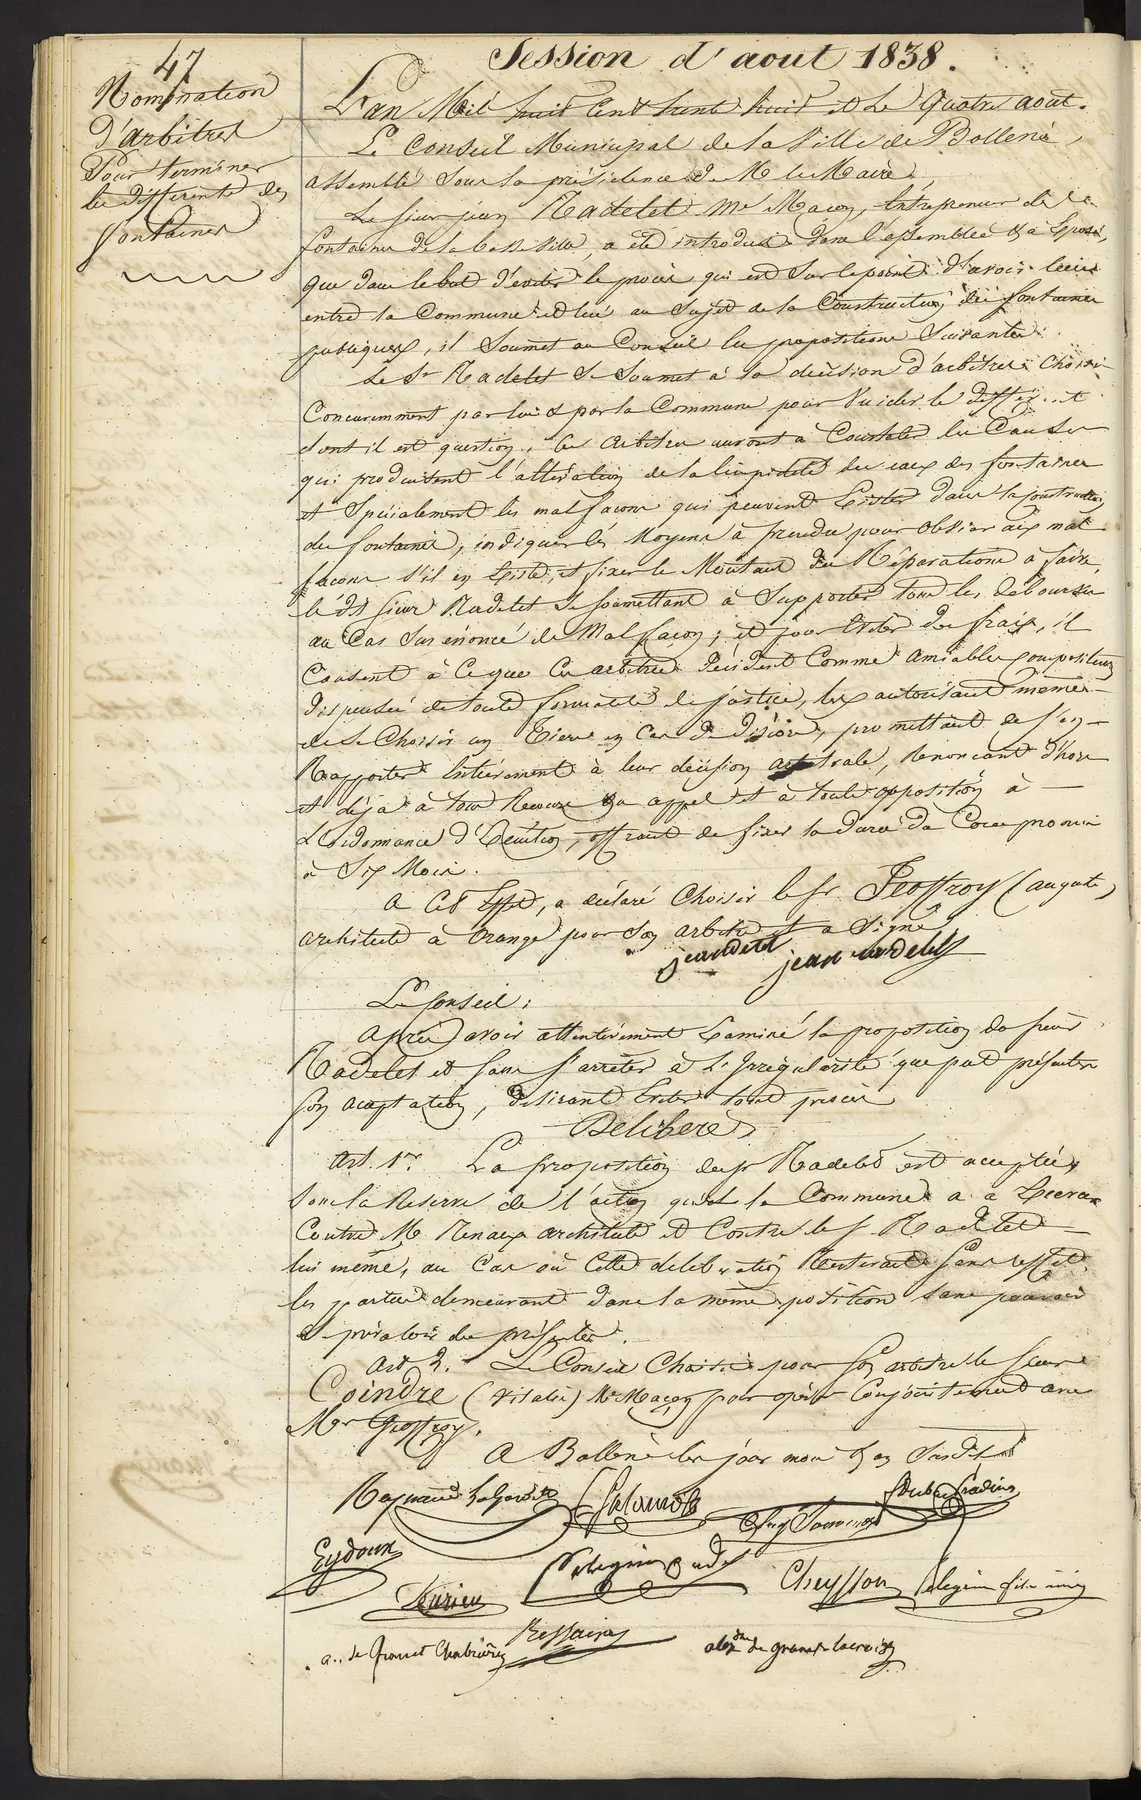 47
Nomination
d'arbitres
Pour terminer
le differents des
fontaines
Session d'aout 1838.
L'an Mil huit Cent trente huit et Le Quatre aout.
Le Conseil Municipal de la Ville de Bollène,
assemblé sous la présidence de M le Maire.
Le sieur jean Radelet Me Maçon, Entrepreneur des
fontaines de la basse ville, a été introduit dans l'assemblée & a Exposé,
que dans le but d'eviter le procès qui est sur le point d'avoir lieu
entre la Commune et lui au sujet de la Construction des fontaines
publiques, il soumet au Conseil les propositions suivantes:
Le Sr Radelet se soumet à la décision d'arbitres choisis
Concurremment par lui & par la Commune pour vuider le differ...t
dont il est question, les arbitres auront à Constater les Causes
qui produisent l'altération de la limpidité des eaux des fontaines
et spécialement les malfaçons qui peuvent Exister dans la construction
des fontaines, indiquer les Moyens à prendre pour obvier aux mal
façons s'il en Existe, et fixer le Montant des Réparations à faire,
le dit sieur Radelet se soumettant à Supporter tous les déboursés
au Cas sus énoncé de Malfaçon; et pour Eviter des fraix, il
Consent à Ce que Ces arbitres décident Comme amiables Compositeurs
dispensés de toute formalité de justice, les autorisant même
de se Choisir un Tiers en Cas de Division, promettant de s'en
Rapporter Entièrement à leur décision arbitrale, Renoncant d'hors
et déja à tous Recours en appel et à toute opposition à
L'ordonnance d'Exécution, offrant de fixer la durée du Compromis
à Six Mois.
A Cet Effet, a déclaré Choisir le sr Geoffroy (auguste)
architecte à Orange pour son arbitre et a Signé
jean radelet
Le Conseil;
Après avoir attentivement Examiné la proposition du sieur
Radelet et sans s'arrêter à L'Irrégularité que put présenter
son acceptation, désirant Eviter tout procès
Delibere
Art. 1er. La proposition du sr Radelet est acceptée,
sous la Reserve de l'action qu'et la Commune a à Exercer
Contre Mr Renaux architecte et Contre le sr Radelet
lui même, au Cas où Cette deliberation Resterait sans effet,
les parties demeurant dans la même position sans pouvoir
se prévaloir des présentes.
Art 2. Le Conseil Choisit pour son arbitre le sieur
Coindre (Vitalis) Me Maçon pour opérer Conjointement avec
Mr Geoffroy.
A Bollène les jour mois & an Susdits
Eydoux
Cheysson
Pelegrin fils
Ressaire
a.. de Granet Chabrières
alexdre de granet lacroix